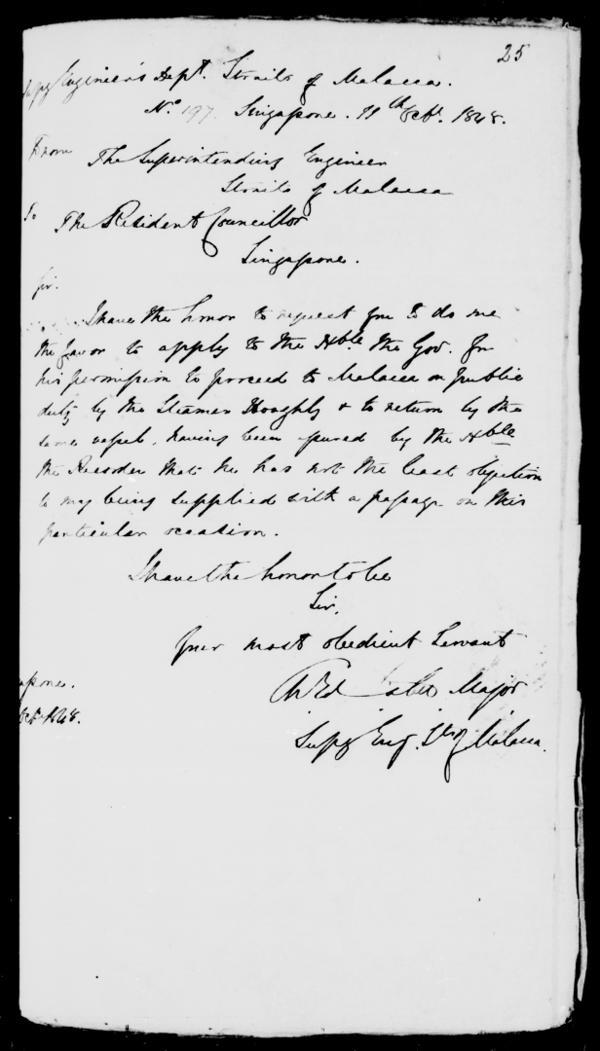 25
Supg Engineer's Dept. Straits of Malacca.
No. 197. Singapore. 11th Octr. 1848.
From The Superintending Engineer
Straits of Malacca
To The Resident Councillor
Singapore.
Sir.
I have the honor to request you to do me
the favor to apply to the Hble the Gov. for
his permission to proceed to Malacca on public
duty by the Steamer Hooghly & to return by the
same vessel, having been assured by the Hble
the Recorder that he has not the least objection
to my being supplied with a passage on this
particular occasion.
I have the honor to be
Sir,
Your most obedient Servant
Major
Supg Eng. Sts of Malacca.
apore.
Oct. 1848.